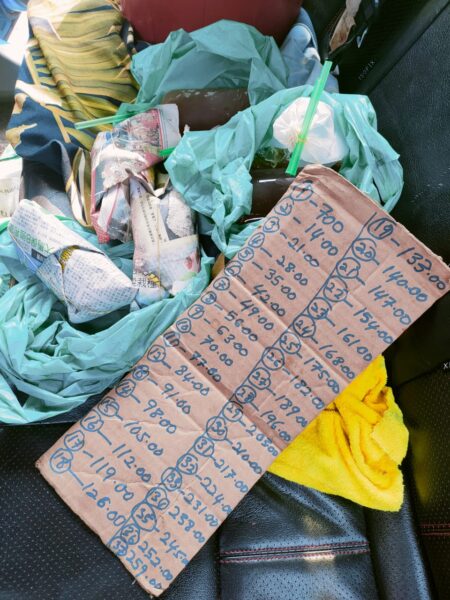 1 - 7.00
2 - 14.00
3 - 21.00
4 - 28.00
5 - 35.00
6 - 42.00
7 - 49.00
8 - 56.00
9 - 63.00
10 - 70.00
11 - 77.00
12 - 84.00
13 - 91.00
14 - 98.00
15 - 105.00
16 - 112.00
17 - 119.00
18 - 126.00
19 - 133.00
20 - 140.00
21 - 147.00
22 - 154.00
23 - 161.00
24 - 168.00
25 - 175.00
26 - 182.00
27 - 189.00
28 - 196.00
29 - 203.00
30 - 210.00
31 - 217.00
32 - 224.00
33 - 231.00
34 - 238.00
35 - 245.00
36 - 252.00
37 - 259.00